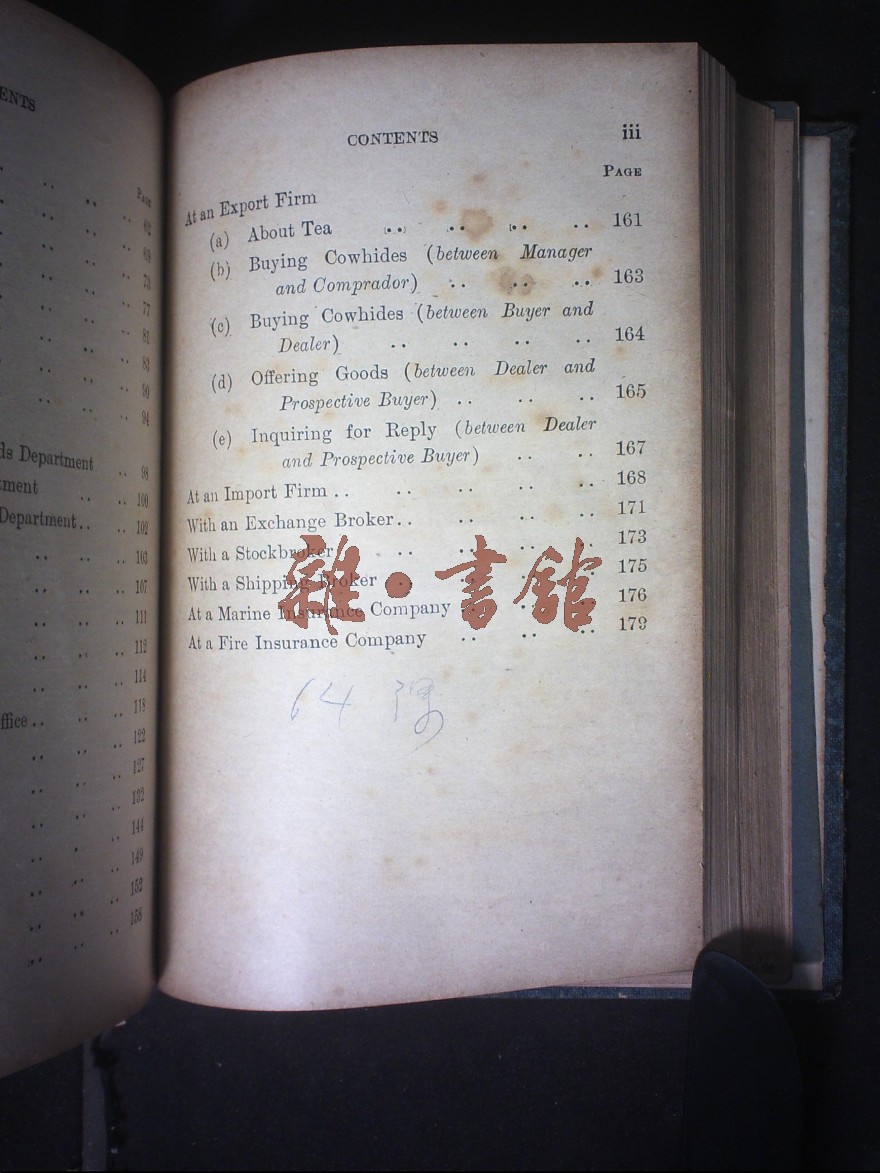 ENTS
PAGE
62
69
73
77
81
83
90
94
ds Department .. 98
tment .. .. 100
Department .. .. 102
.. .. 103
.. .. 107
.. .. 111
.. .. 112
.. .. 114
.. .. 118
ffice .. .. .. 122
.. .. 127
.. .. 132
.. .. 144
.. .. 149
.. .. 152
.. .. 158
CONTENTS iii
PAGE
At an Export Firm
(a) About Tea .. .. .. .. 161
(b) Buying Cowhides (between Manager
and Comprador) .. .. .. 163
(c) Buying Cowhides (between Buyer and
Dealer) .. .. .. .. 164
(d) Offering Goods (between Dealer and
Prospective Buyer) .. .. .. 165
(e) Inquiring for Reply (between Dealer
and Prospective Buyer) .. .. 167
At an Import Firm .. .. .. .. .. 168
With an Exchange Broker .. .. .. .. 171
With a Stockbroker .. .. .. .. 173
With a Shipping Broker .. .. .. .. 175
At a Marine Insurance Company .. .. .. 176
At a Fire Insurance Company .. .. .. 179
雜·書館
64